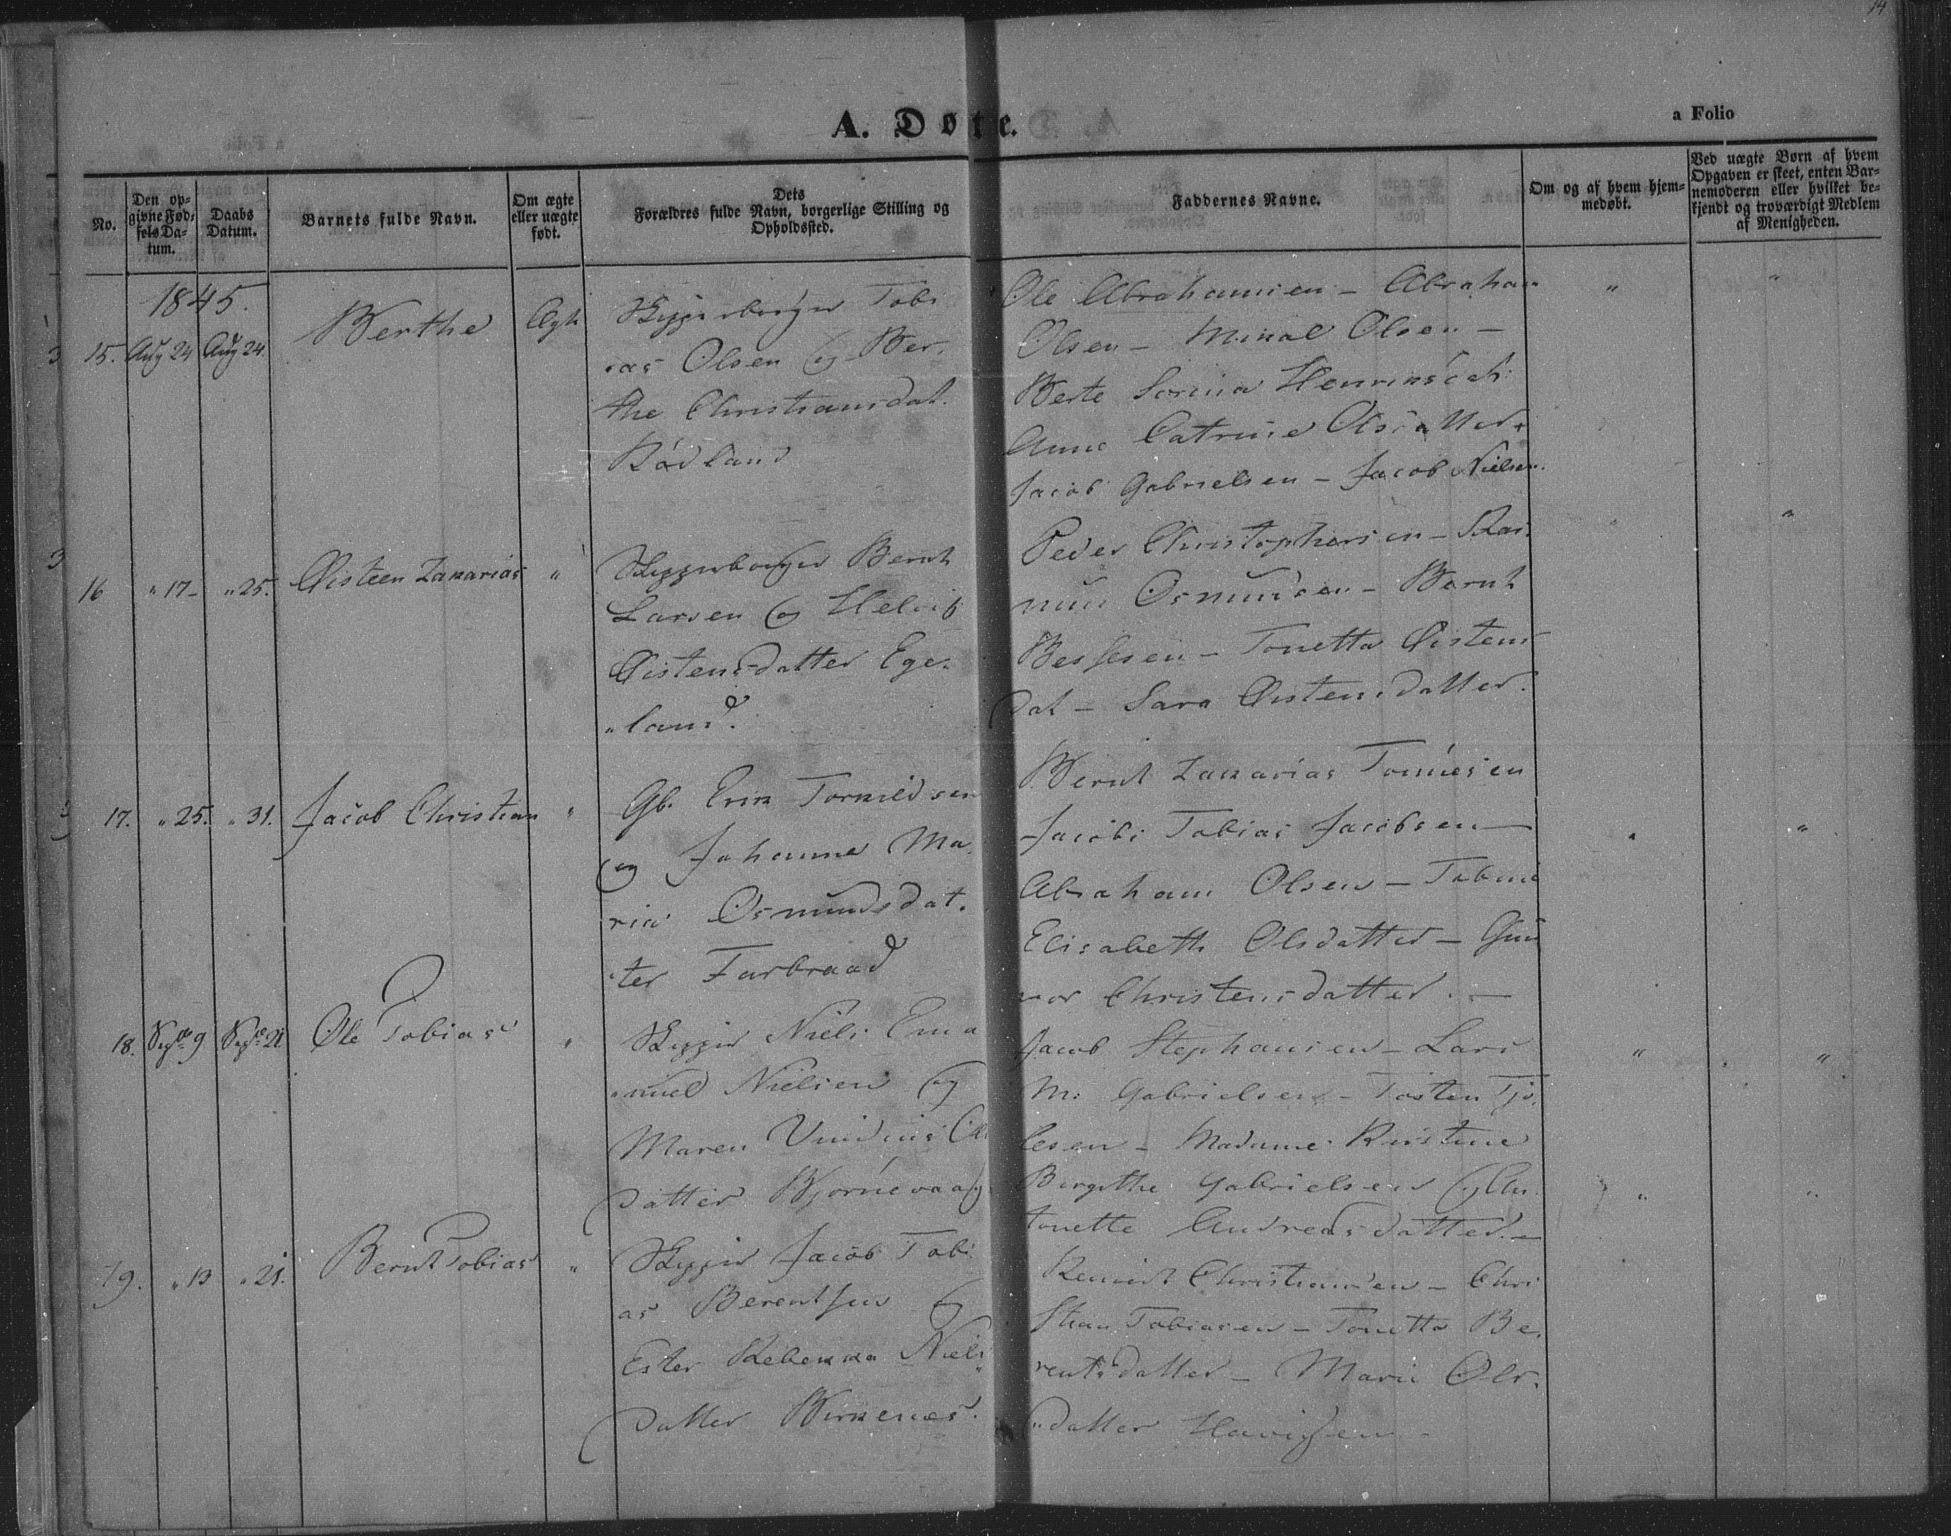 14
A. Døte.
a Folio
No.
Den op-
givne Fød-
sels Da-
tum.
Daabs
Datum.
Barnets fulde Navn.
Om ægte
eller uægte
født.
Dets
Forældres fulde Navn, borgerlige Stilling og
Opholdssted.
Faddernes Navne.
Om og af hvem hjem-
medøbt.
Ved uægte Børn af hvem
Opgaven er skeet, enten Bar-
nemoderen eller hvilket be-
kjendt og troværdigt Medlem
af Menigheden.
1845.
15. Aug 24 Aug 24. Berthe Ægte
Tobi
as Olsen og Ber-
the Christiansdat.
Rødland
Ole Abrahamsen - Abraham
Olsen - Mikal Olsen -
Berte Sorina
Anne Catrine Olsdatter
Jacob Gabrielsen - Jacob Nielsen.
" "
16 " 17- " 25. Østeen Zakarias "
Bernt
Larsen og Helvig
Østensdatter Ege-
land.
Peder Christophersen - Ras-
mus Osmundsen - Bernt
Bessesen - Tonetta Østens
dat - Sara Østensdatter.
" "
17. " 25. " 31. Jacob Christian "
Gb. Erik Torkildsen
og Johanne Ma-
ria Osmundsdat-
ter Furbraad
Bernt Zakarias Tonnesen
Jacob Tobias Jacobsen -
Abraham Olsen -
Elisabeth Olsdatter - Gun
nor Christensdatter. -
" "
18. Septr 9 Septr 21 Ole Tobias "
Skipper Niels Ema
nuel Nielsen og
Maren
datter
Jacob Stephansen - Lars
M. Gabrielsen - Tosten Tjø-
lesen - Madame Kristine
Birgithe Gabrielsen og An
tonette Andreasdatter. -
" "
19. " 13 " 21. Bernt Tobias "
Skipper Jacob Tobi
as Berentsen og
Ester Rebekka Niels
datter Birkenes.
Christiansen - Chri
stian Tobiasen - Tonetta Be-
rentsdatter - Marie Ols-
datter
" "